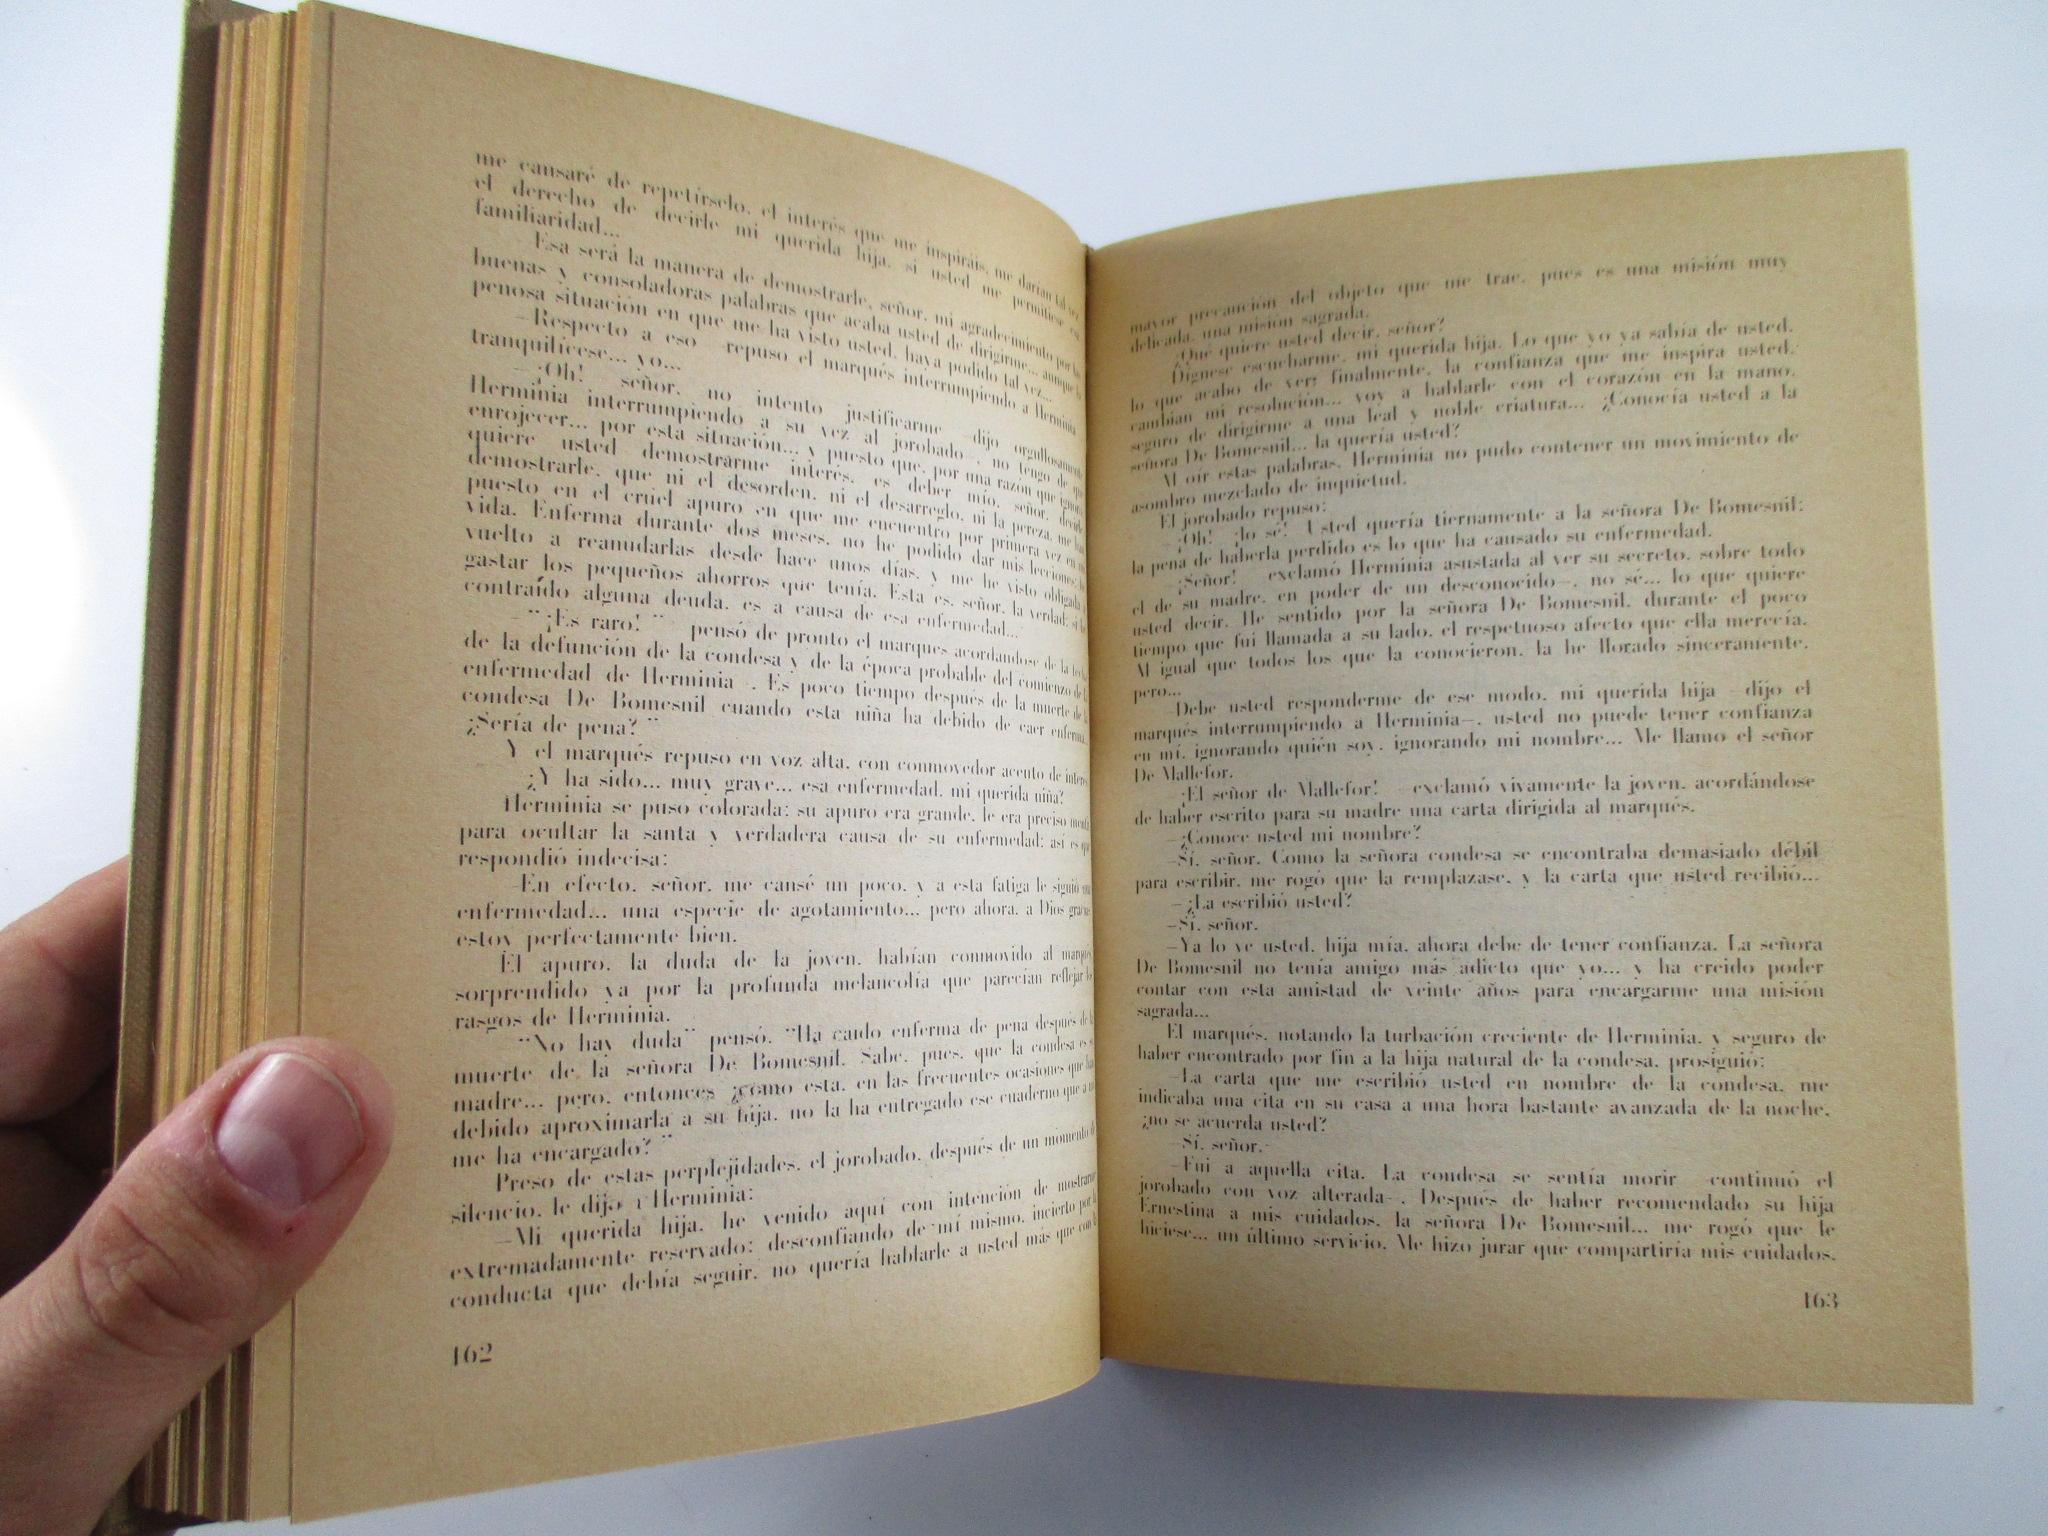 me cansaré de repetírselo, el interés que me inspiráis, me darían tal vez
el derecho de decirle mi querida hija, si usted me permitiese esa
familiaridad...
Esa será la manera de demostrarle, señor, mi agradecimiento por las
buenas y consoladoras palabras que acaba usted de dirigirme... aunque la
penosa situación en que me ha visto usted, haya podido tal vez...
—Respecto a eso —repuso el marqués interrumpiendo a Herminia
tranquilícese... yo...
—¡Oh! señor, no intento justificarme —dijo orgullosamente
Herminia interrumpiendo a su vez al jorobado—, no tengo de qué
enrojecer... por esta situación... y puesto que, por una razón que ignoro
quiere usted demostrarme interés, es deber mío, señor, decirle
demostrarle, que ni el desorden, ni el desarreglo, ni la pereza, me han
puesto en el crüel apuro en que me encuentro por primera vez en mi
vida. Enferma durante dos meses, no he podido dar mis lecciones; he
vuelto a reanudarlas desde hace unos días, y me he visto obligada a
gastar los pequeños ahorros que tenía. Esta es, señor, la verdad; si he
contraído alguna deuda, es a causa de esa enfermedad...
—"¡Es raro!" pensó de pronto el marques acordandose de la fecha
de la defunción de la condesa y de la época probable del comienzo de la
enfermedad de Herminia—. Es poco tiempo después de la muerte de la
condesa De Bomesnil cuando esta niña ha debido de caer enferma...
¿Sería de pena?"
Y el marqués repuso en voz alta, con conmovedor acento de interés
¿Y ha sido... muy grave... esa enfermedad, mi querida niña?
Herminia se puso colorada; su apuro era grande, le era preciso mentir
para ocultar la santa y verdadera causa de su enfermedad; así es que
respondió indecisa:
—En efecto, señor, me cansé un poco, y a esta fatiga le siguió una
enfermedad... una especie de agotamiento... pero ahora, a Dios gracias
estoy perfectamente bien.
El apuro, la duda de la joven, habían conmovido al marqués,
sorprendido ya por la profunda melancolía que parecían reflejar los
rasgos de Herminia.
"No hay duda" pensó. "Ha caído enferma de pena después de la
muerte de la señora De Bomesnil. Sabe, pues, que la condesa es su
madre... pero, entonces ¿como esta, en las frecuentes ocasiones que han
debido aproximarla a su hija, no la ha entregado ese cuaderno que a mí
me ha encargado?"
Preso de estas perplejidades, el jorobado, después de un momento de
silencio, le dijo a Herminia:
—Mi querida hija, he venido aquí con intención de mostrarme
extremadamente reservado; desconfiando de mí mismo, incierto por la
conducta que debía seguir, no quería hablarle a usted más que con la
162
mayor precaución del objeto que me trae, pues es una misión muy
delicada, una misión sagrada.
¿Qué quiere usted decir, señor?
Dígnese escucharme, mi querida hija. Lo que yo ya sabía de usted,
lo que acabo de ver; finalmente, la confianza que me inspira usted,
cambian mi resolución... voy a hablarle con el corazón en la mano,
seguro de dirigirme a una leal y noble criatura... ¿Conocía usted a la
señora De Bomesnil... la quería usted?
Al oír estas palabras, Herminia no pudo contener un movimiento de
asombro mezclado de inquietud.
El jorobado repuso:
—¡Oh! ¡lo sé! Usted quería tiernamente a la señora De Bomesnil;
la pena de haberla perdido es lo que ha causado su enfermedad.
¡Señor! exclamó Herminia asustada al ver su secreto, sobre todo
el de su madre, en poder de un desconocido—, no sé... lo que quiere
usted decir. He sentido por la señora De Bomesnil, durante el poco
tiempo que fui llamada a su lado, el respetuoso afecto que ella merecía.
Al igual que todos los que la conocieron, la he llorado sinceramente,
pero...
—Debe usted responderme de ese modo, mi querida hija —dijo el
marqués interrumpiendo a Herminia—, usted no puede tener confianza
en mí, ignorando quién soy, ignorando mi nombre... Me llamo el señor
De Mallefor.
¡El señor de Mallefor! —exclamó vivamente la joven, acordándose
de haber escrito para su madre una carta dirigida al marqués.
—¿Conoce usted mi nombre?
—Sí, señor. Como la señora condesa se encontraba demasiado débil
para escribir, me rogó que la remplazase, y la carta que usted recibió...
—¿La escribió usted?
—Sí, señor.
—Ya lo ve usted, hija mía, ahora debe de tener confianza. La señora
De Bomesnil no tenía amigo más adicto que yo... y ha creido poder
contar con esta amistad de veinte años para encargarme una misión
sagrada...
El marqués, notando la turbación creciente de Herminia, y seguro de
haber encontrado por fin a la hija natural de la condesa, prosiguió:
—La carta que me escribió usted en nombre de la condesa, me
indicaba una cita en su casa a una hora bastante avanzada de la noche,
¿no se acuerda usted?
—Sí, señor.
—Fui a aquella cita. La condesa se sentía morir —continuó el
jorobado con voz alterada—. Después de haber recomendado su hija
Ernestina a mis cuidados, la señora De Bomesnil... me rogó que le
hiciese... un último servicio. Me hizo jurar que compartiría mis cuidados,
163